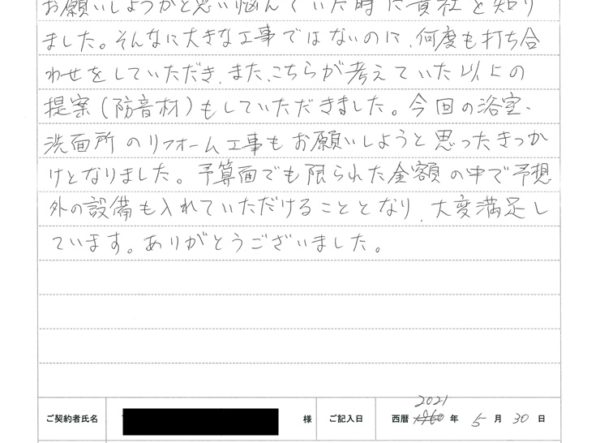 お願いしようかと思い悩んでいた時に貴社を知り
ました。そんなに大きな工事ではないのに、何度も打ち合
わせをしていただき、また、こちらが考えていた以上の
提案(防音材)もしていただきました。今回の浴室、
洗面所のリフォーム工事もお願いしようと思ったきっか
けとなりました。予算面でも限られた金額の中で予想
外の設備も入れていただけることとなり、大変満足し
ています。ありがとうございました。
2021
ご契約者氏名 様 ご記入日 西暦 1960 年 5 月 30 日